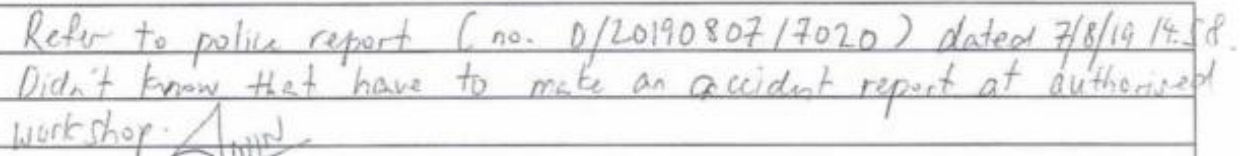 Refer to police report (no. D/20190807/7020) dated 7/8/19 14.58.
Didn't know that have to make an accident report at authorised
workshop.